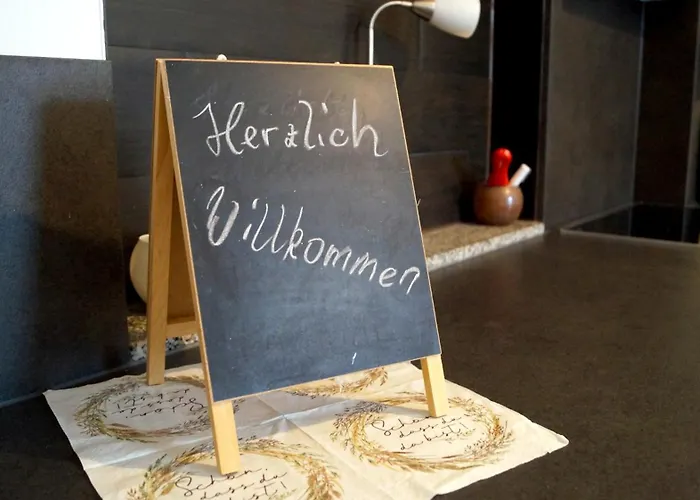 Herzlich
Willkommen
Schön,
dass du
da bist!
Schön,
dass du
da bist!
Schön,
dass du
da bist!